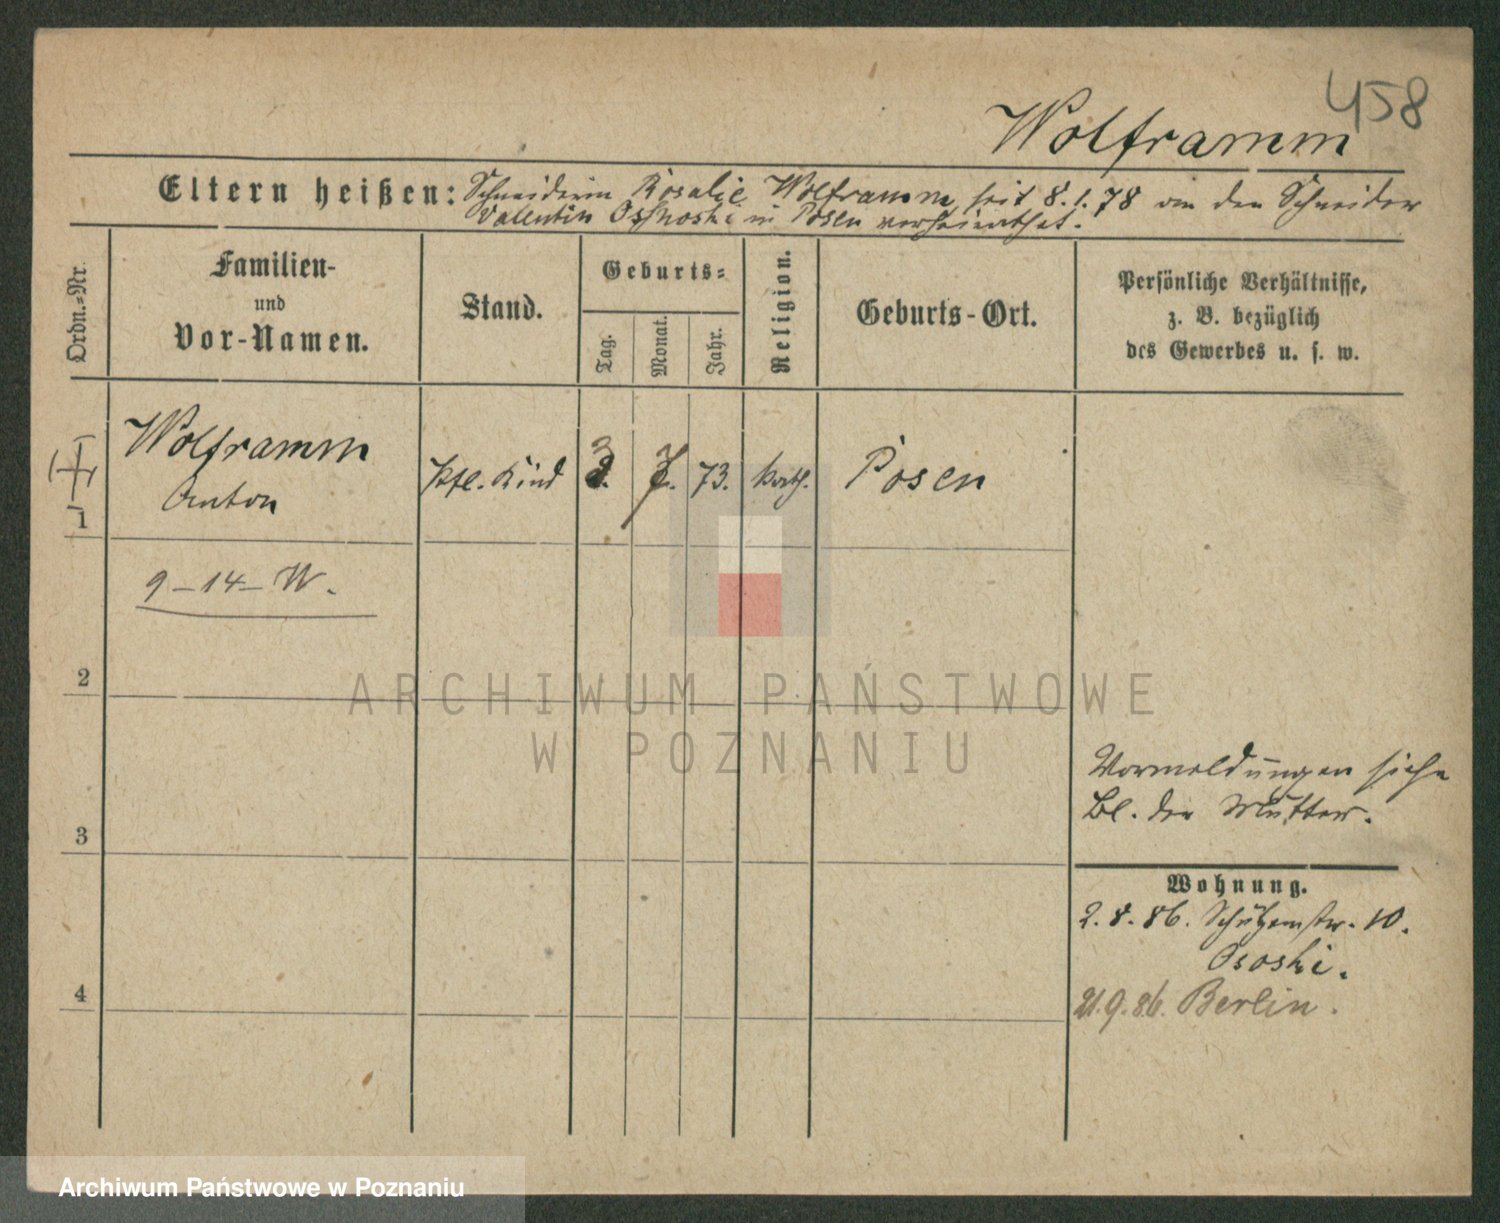 458
Wolframm
Eltern heißen: Schneiderin Rosalie Wolframm seit 8.1.78 an den Schneider
Valentin in Posen verheirathet.
Ordn.-Nr.
Familien-
und
Vor-Namen.
Stand.
Geburts-
Tag.
Monat.
Jahr.
Religion.
Geburts-Ort.
Persönliche Verhältnisse,
z. B. bezüglich
des Gewerbes u. s. w.
1
Wolframm
Anton
Kind
3. 7. 73. kath. Posen
9-14-W.
2
ARCHIWUM PAŃSTWOWE
W POZNANIU
Vormeldungen siehe
Bl. der Mutter.
3
Wohnung.
2.8.86. Schützenstr. 10.
Ososki.
4
21.9.86. Berlin.
Archiwum Państwowe w Poznaniu